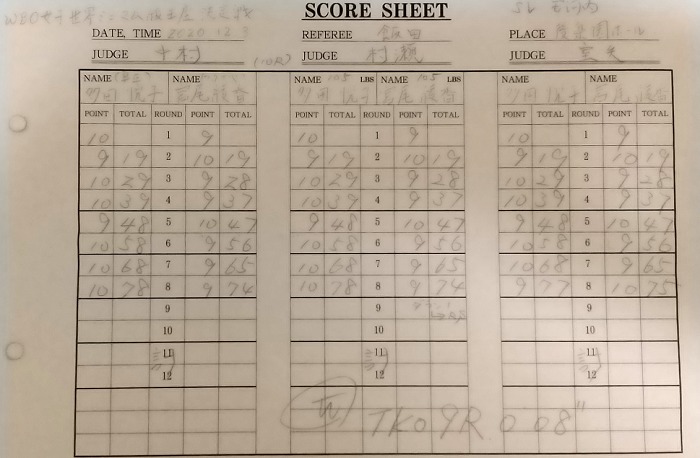 WBO女子世界ミニマム級王座 決定戦
SCORE SHEET
DATE, TIME 2020 12 3
REFEREE 飯田
PLACE 後楽園ホール
JUDGE 中村 (10R)
JUDGE 村瀬
JUDGE
NAME NAME
NAME 105 LBS NAME 105 LBS
NAME NAME
多田 悦子
多田 悦子
多田 悦子
POINT TOTAL ROUND POINT TOTAL POINT TOTAL ROUND POINT TOTAL POINT TOTAL ROUND POINT TOTAL
10 1 9 10 1 9 10 1 9
9 19 2 10 19 9 19 2 10 19 9 19 2 10 19
10 29 3 9 28 10 29 3 9 28 10 29 3 9 28
10 39 4 9 37 10 39 4 9 37 10 39 4 9 37
9 48 5 10 47 9 48 5 10 47 9 48 5 10 47
10 58 6 9 56 10 58 6 9 56 10 58 6 9 56
10 68 7 9 65 10 68 7 9 65 10 68 7 9 65
10 78 8 9 74 10 78 8 9 74 9 77 8 10 75
9 9 9
10 10 10
11 11 11
12 12 12
TKO 9R 0 08"